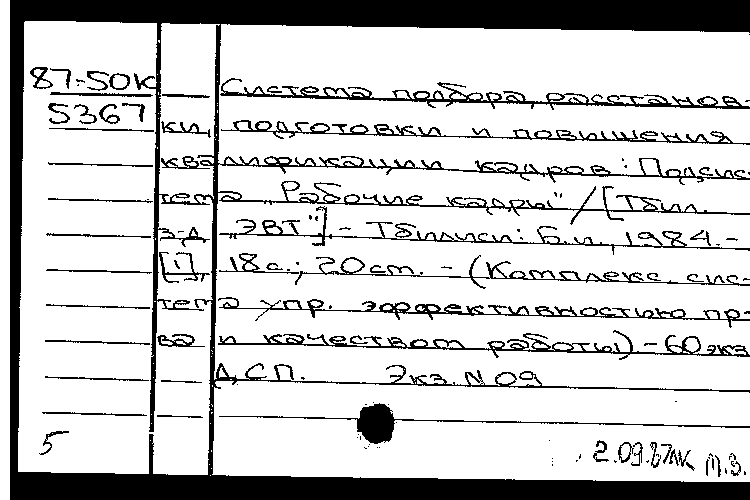 87-50К
5367
Система подбора, расстанов-
ки, подготовки и повышения
квалификации кадров: Подсис-
тема „Рабочие кадры" / [Тбил.
з-д „ЭВТ"]. - Тбилиси: Б.и., 1984. -
[1], 18 с.; 20 cm. - (Комплекс. сис-
тема упр. эффективностью пр-
ва и качеством работы). - 60 экз.
ДСП. Экз. N 09
5
2.09.87